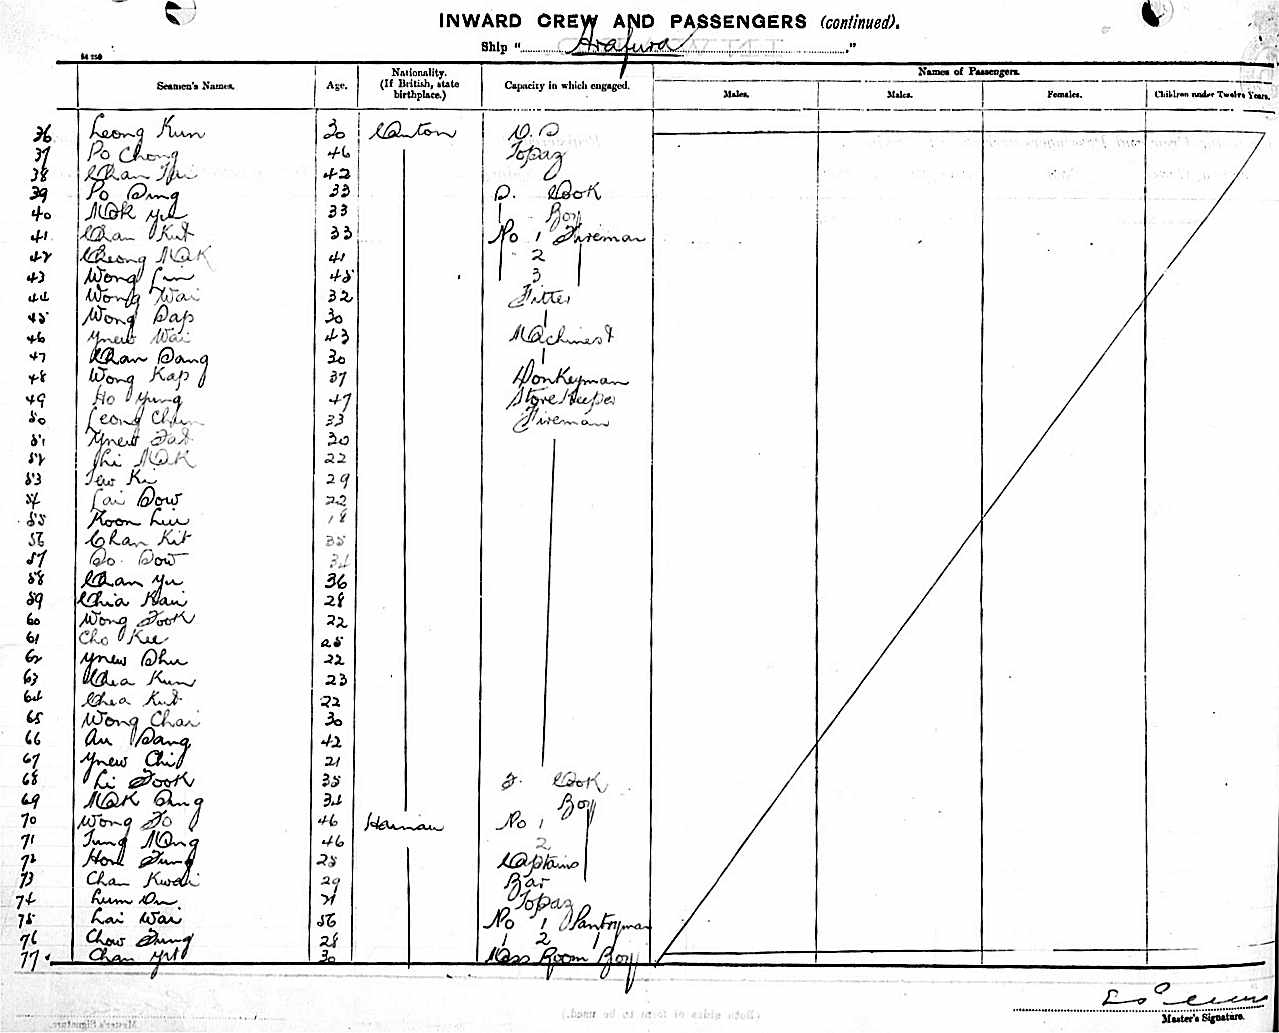 INWARD CREW AND PASSENGERS (continued).
Ship " Arafura "
Seamen's Names. Age. Nationality. (If British, state birthplace.) Capacity in which engaged. Names of Passengers.
Males. Males. Females. Children under Twelve Years.
36 Leong Kun 30 Canton
37 Po Chong 46 Topaz
38 Chan 42
39 Po Sing 33 S. Cook
40 Mok Yu 33 Boy
41 Chan Kut 33 No 1 Fireman
42 Cheong Mok 41 2
43 Wong Lin 45 3
44 Wong Wai 32 Fitter
45 Wong Sap 30
46 Ynew Wai 43 Machinest
47 Chan Sang 30
48 Wong Kap 37 Donkeyman
49 Ho Yung 47 Store Keeper
50 Leong Chun 33 Fireman
51 Ynew Fat 30
52 Mok 22
53 Ki 29
54 Lai Sow 22
55 Koon Lui 18
56 Chan Kit 35
57 So Sow 34
58 Chan Yu 36
59 Chia Kai 28
60 Wong Fook 22
61 Cho Kee 25
62 Ynew Shu 22
63 Chea Kun 23
64 Chea Kut 22
65 Wong Chai 30
66 Au Sang 42
67 Ynew Chi 21
68 Li Fook 35 F. Cook
69 Mok Sing 34 Boy
70 Wong Fo 46 Hainan No 1
71 Tung Mong 46 2
72 Hon Fung 25 Captains
73 Chan Kwai 29 Bar
74 Lum Topaz
75 Lai Wai 56 No 1 Pantryman
76 Chow Fung 28 2
77 Chan Yit 30 Mess Room Boy
Master's Signature.